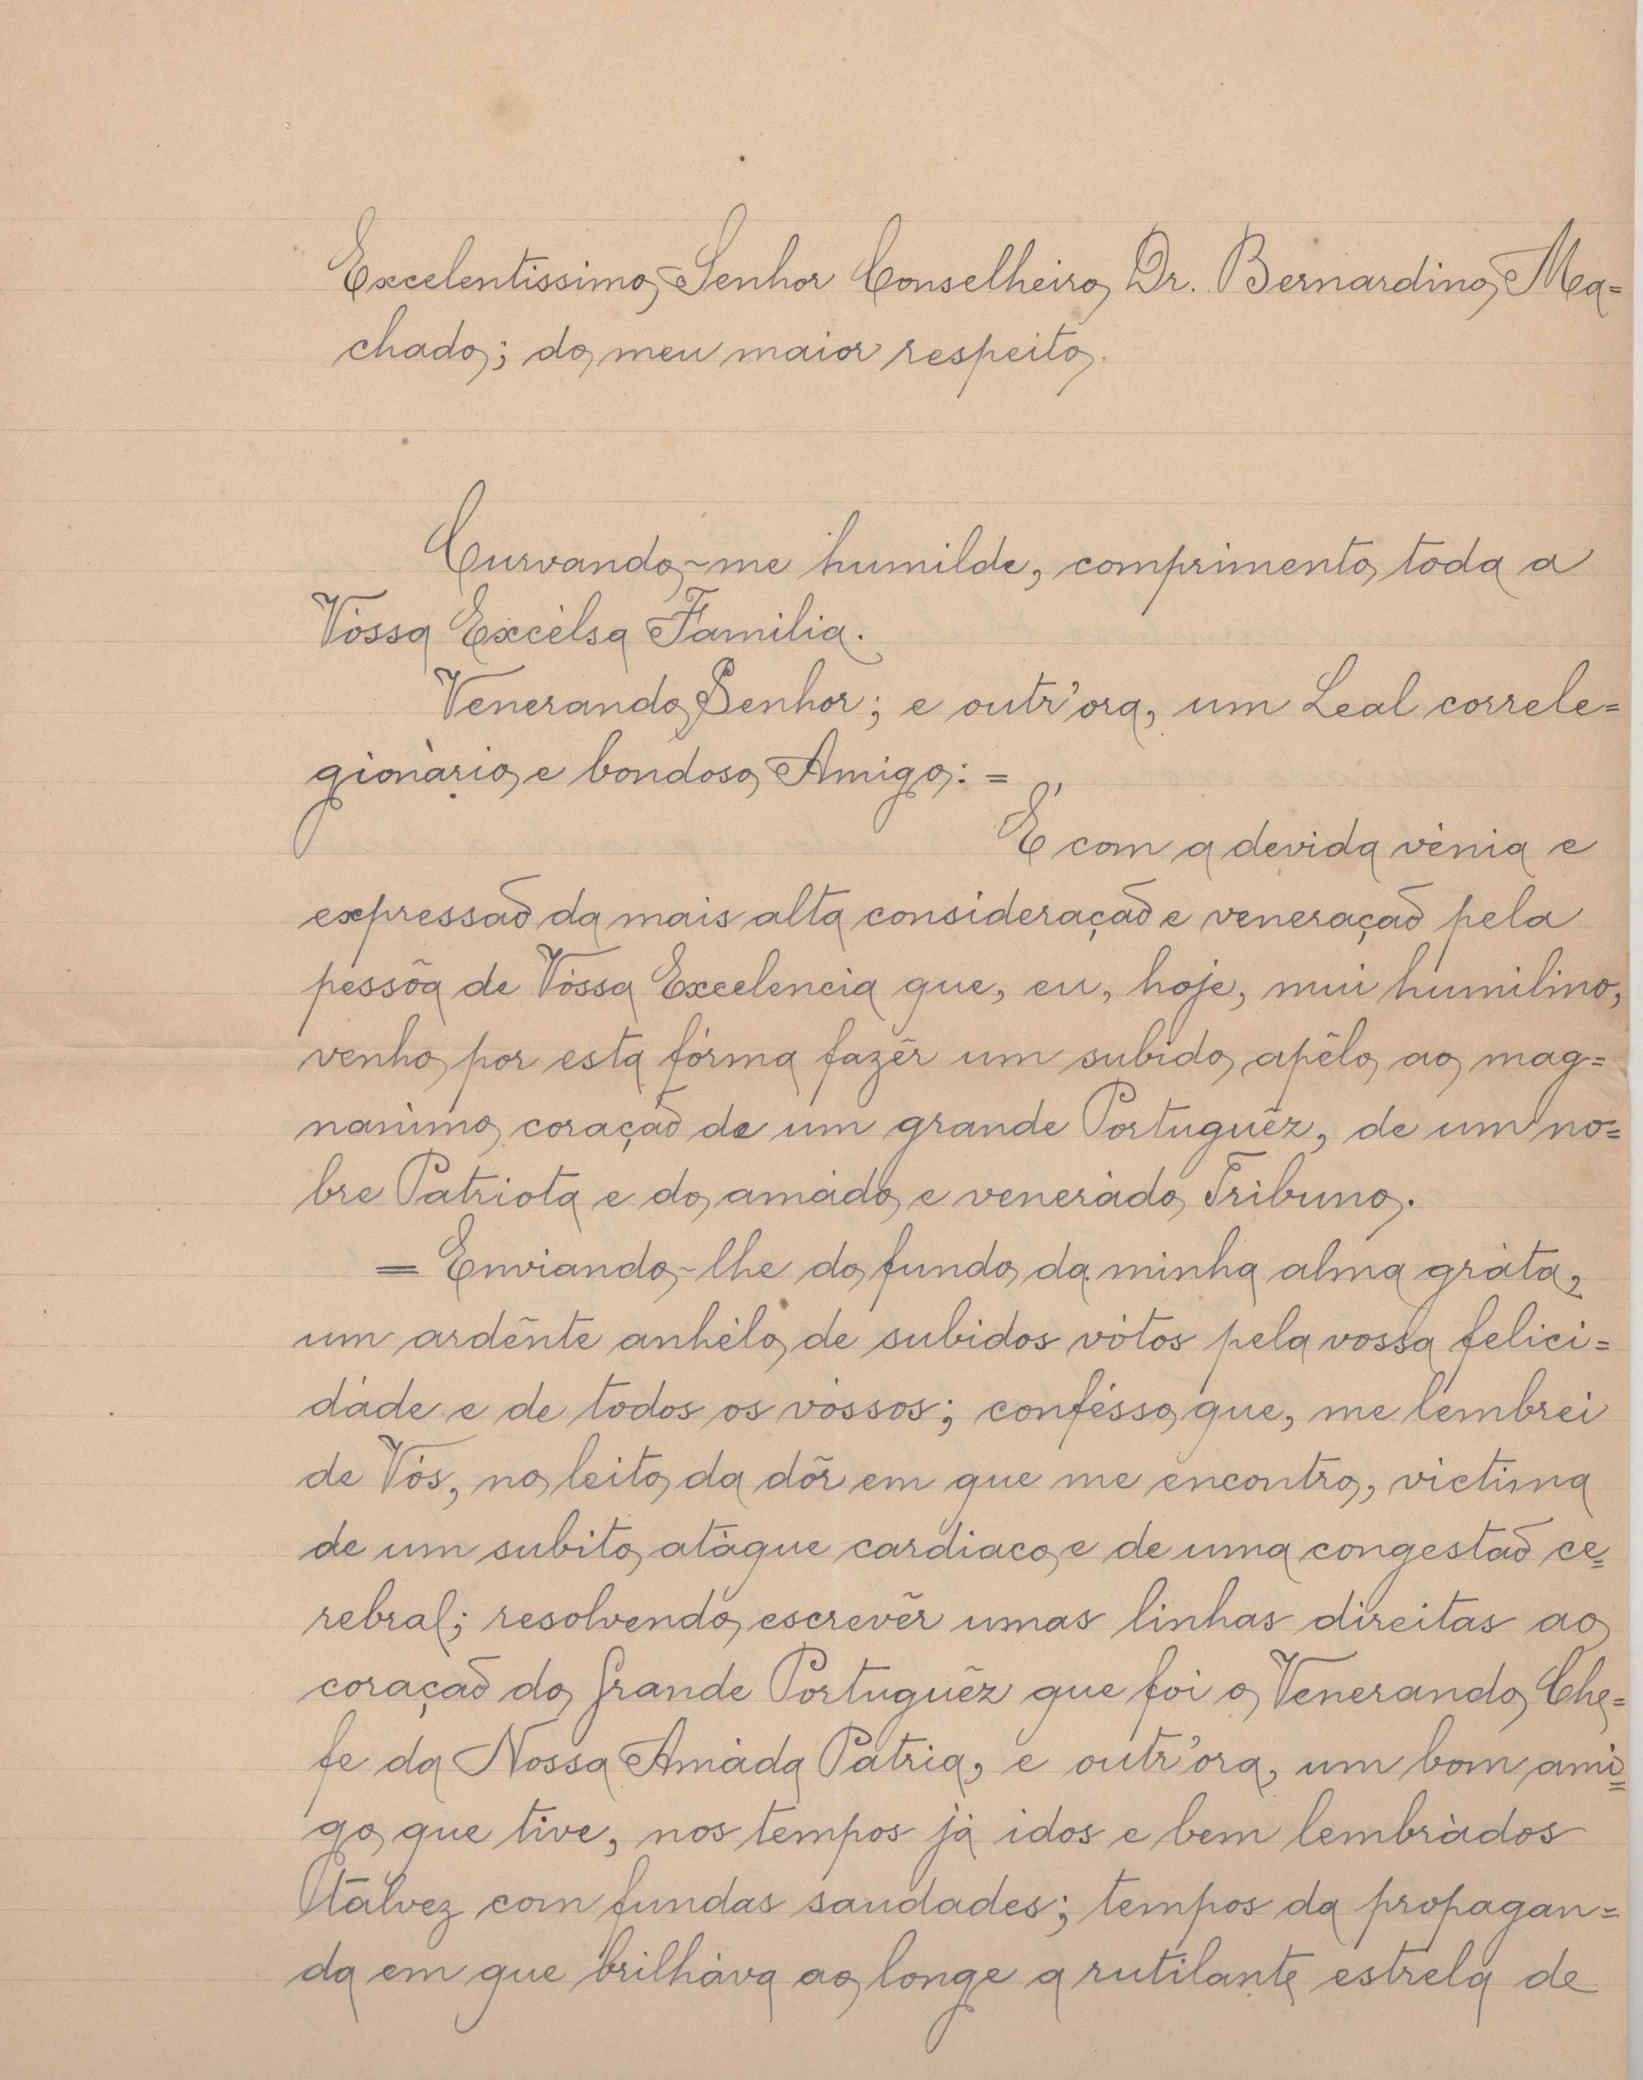 Excelentissimo Senhor Conselheiro Dr. Bernardino Ma=
chado; do meu maior respeito.
Curvando-me humilde, comprimento toda a
Vóssa Excélsa Familia.
Venerando Senhor; e outr'ora, um Leal correle=
gionàrio e bondoso Amigo: =
É com a devida vénia e
expressaõ da mais alta consideraçaõ e veneraçaõ pela
pessõa de Vóssa Excelencia que, eu, hoje, mui humilimo,
venho por esta fórma fazêr um subido apêlo ao mag=
nanimo coraçaõ de um grande Portuguêz, de um no=
bre Patriota e do amádo e venerádo Tribuno.
= Enviando-lhe do fundo da minha alma gráta,
um ardênte anhélo de subidos vótos pela vossa felici=
dáde e de todos os vóssos; confésso que, me lembrei
de Vós, no leito da dôr em que me encontro, victima
de um subito atáque cardiaco e de uma congestaõ ce=
rebral; resolvendo escrevêr umas linhas direitas ao
coraçaõ do Grande Portuguêz que foi o Venerando Che=
fe da Nossa Amáda Patria, e outr'ora, um bom ami=
go que tive, nos tempos já idos e bem lembrádos
talvez com fundas saudades; tempos da propagan=
da em que brilháva ao longe a rutilante estrela de